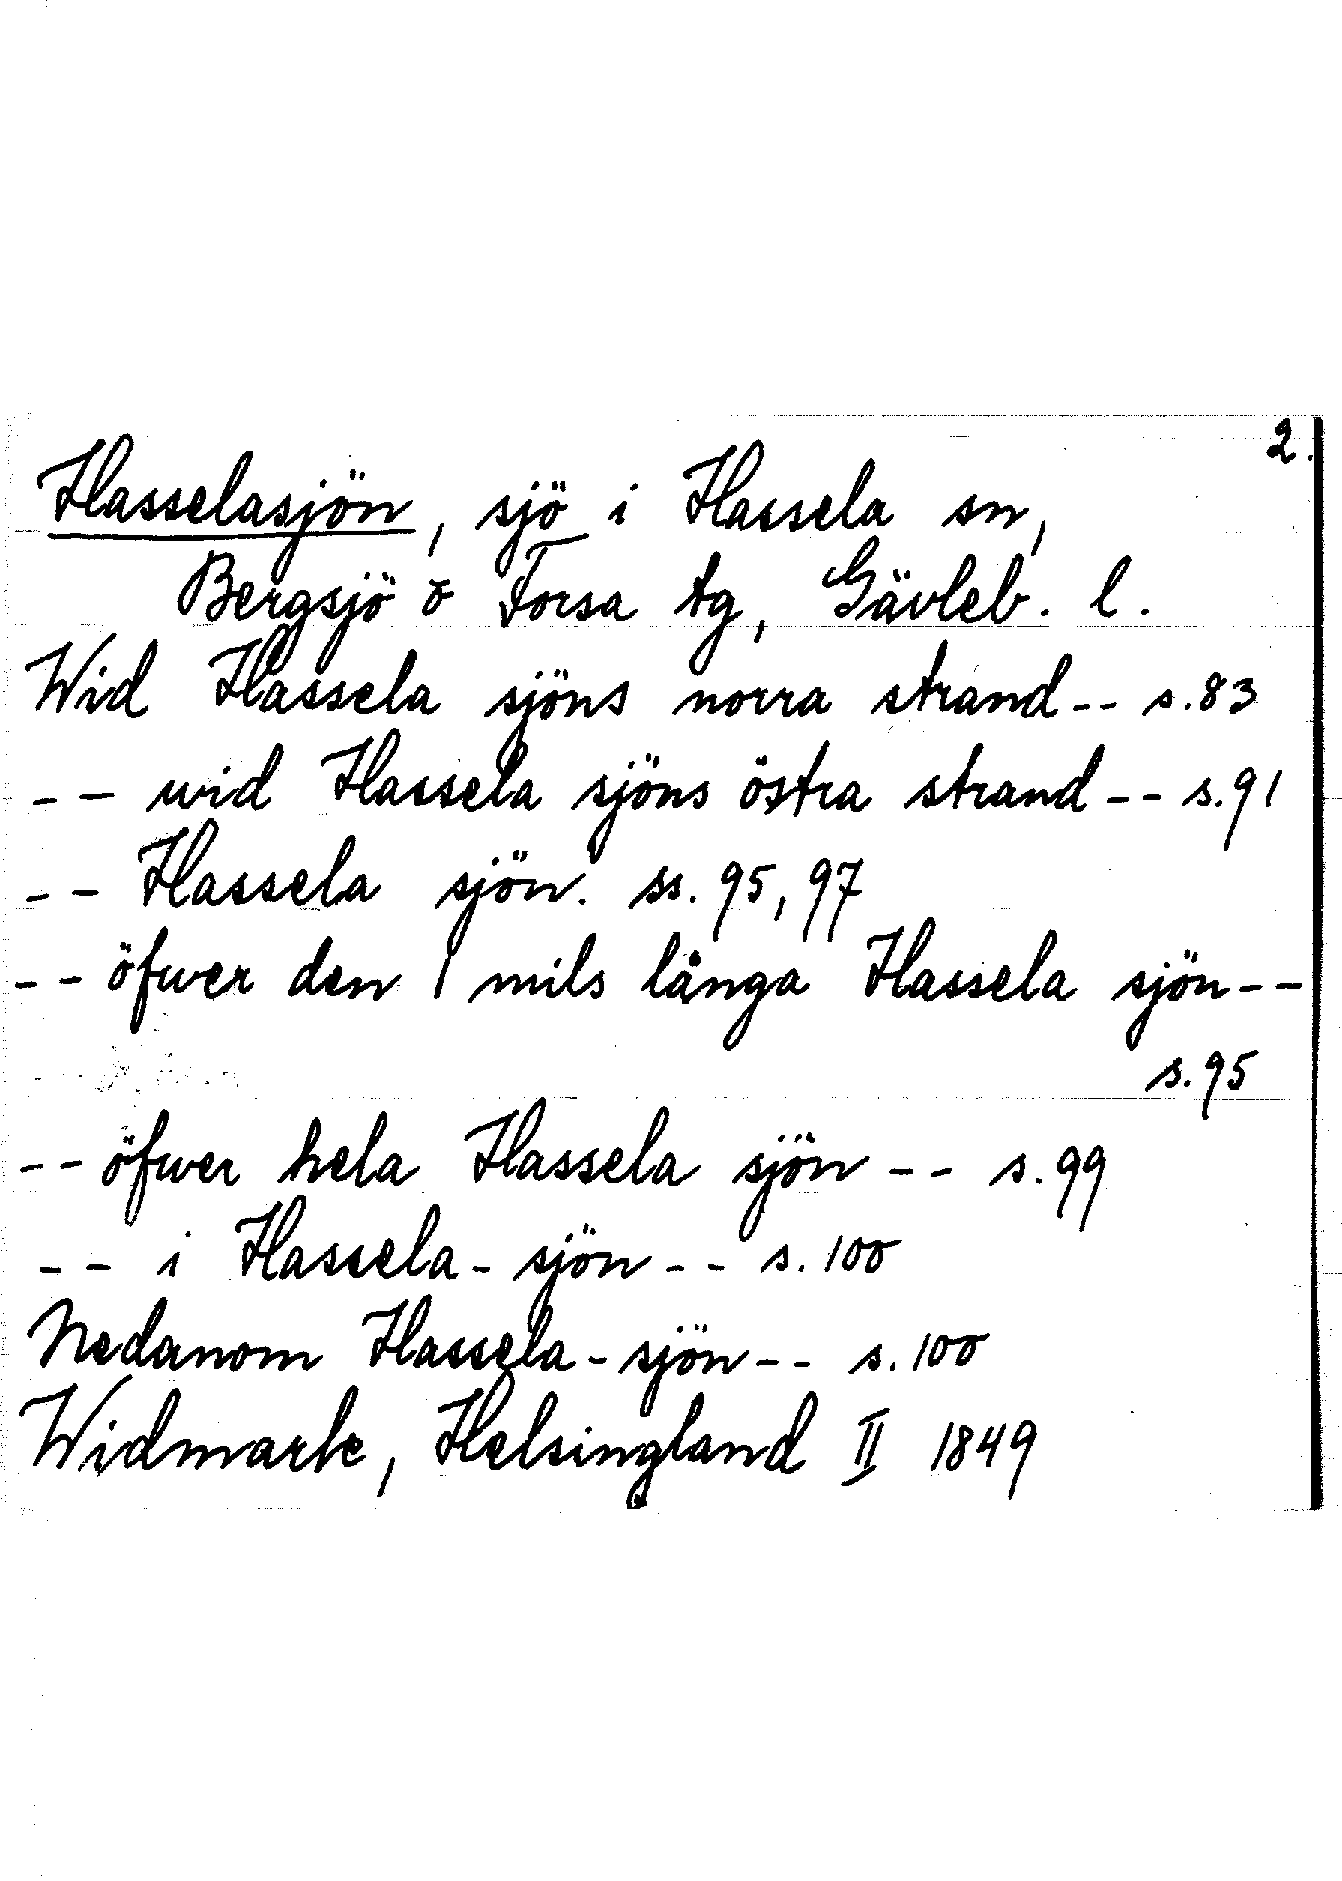 2.
Hasselasjön, sjö i Hassela sn,
Bergsjö o Forsa tg, Gävleb. l.
Wid Hassela sjöns norra strand-- s.83
-- wid Hassela sjöns östra strand-- s.91
-- Hassela sjön. ss. 95, 97
-- öfwer den 1 mils långa Hassela sjön--
s.95
-- öfwer hela Hassela sjön -- s.99
-- i Hassela-sjön-- s.100
Nedanom Hassela-sjön-- s.100
Widmark, Helsingland II 1849